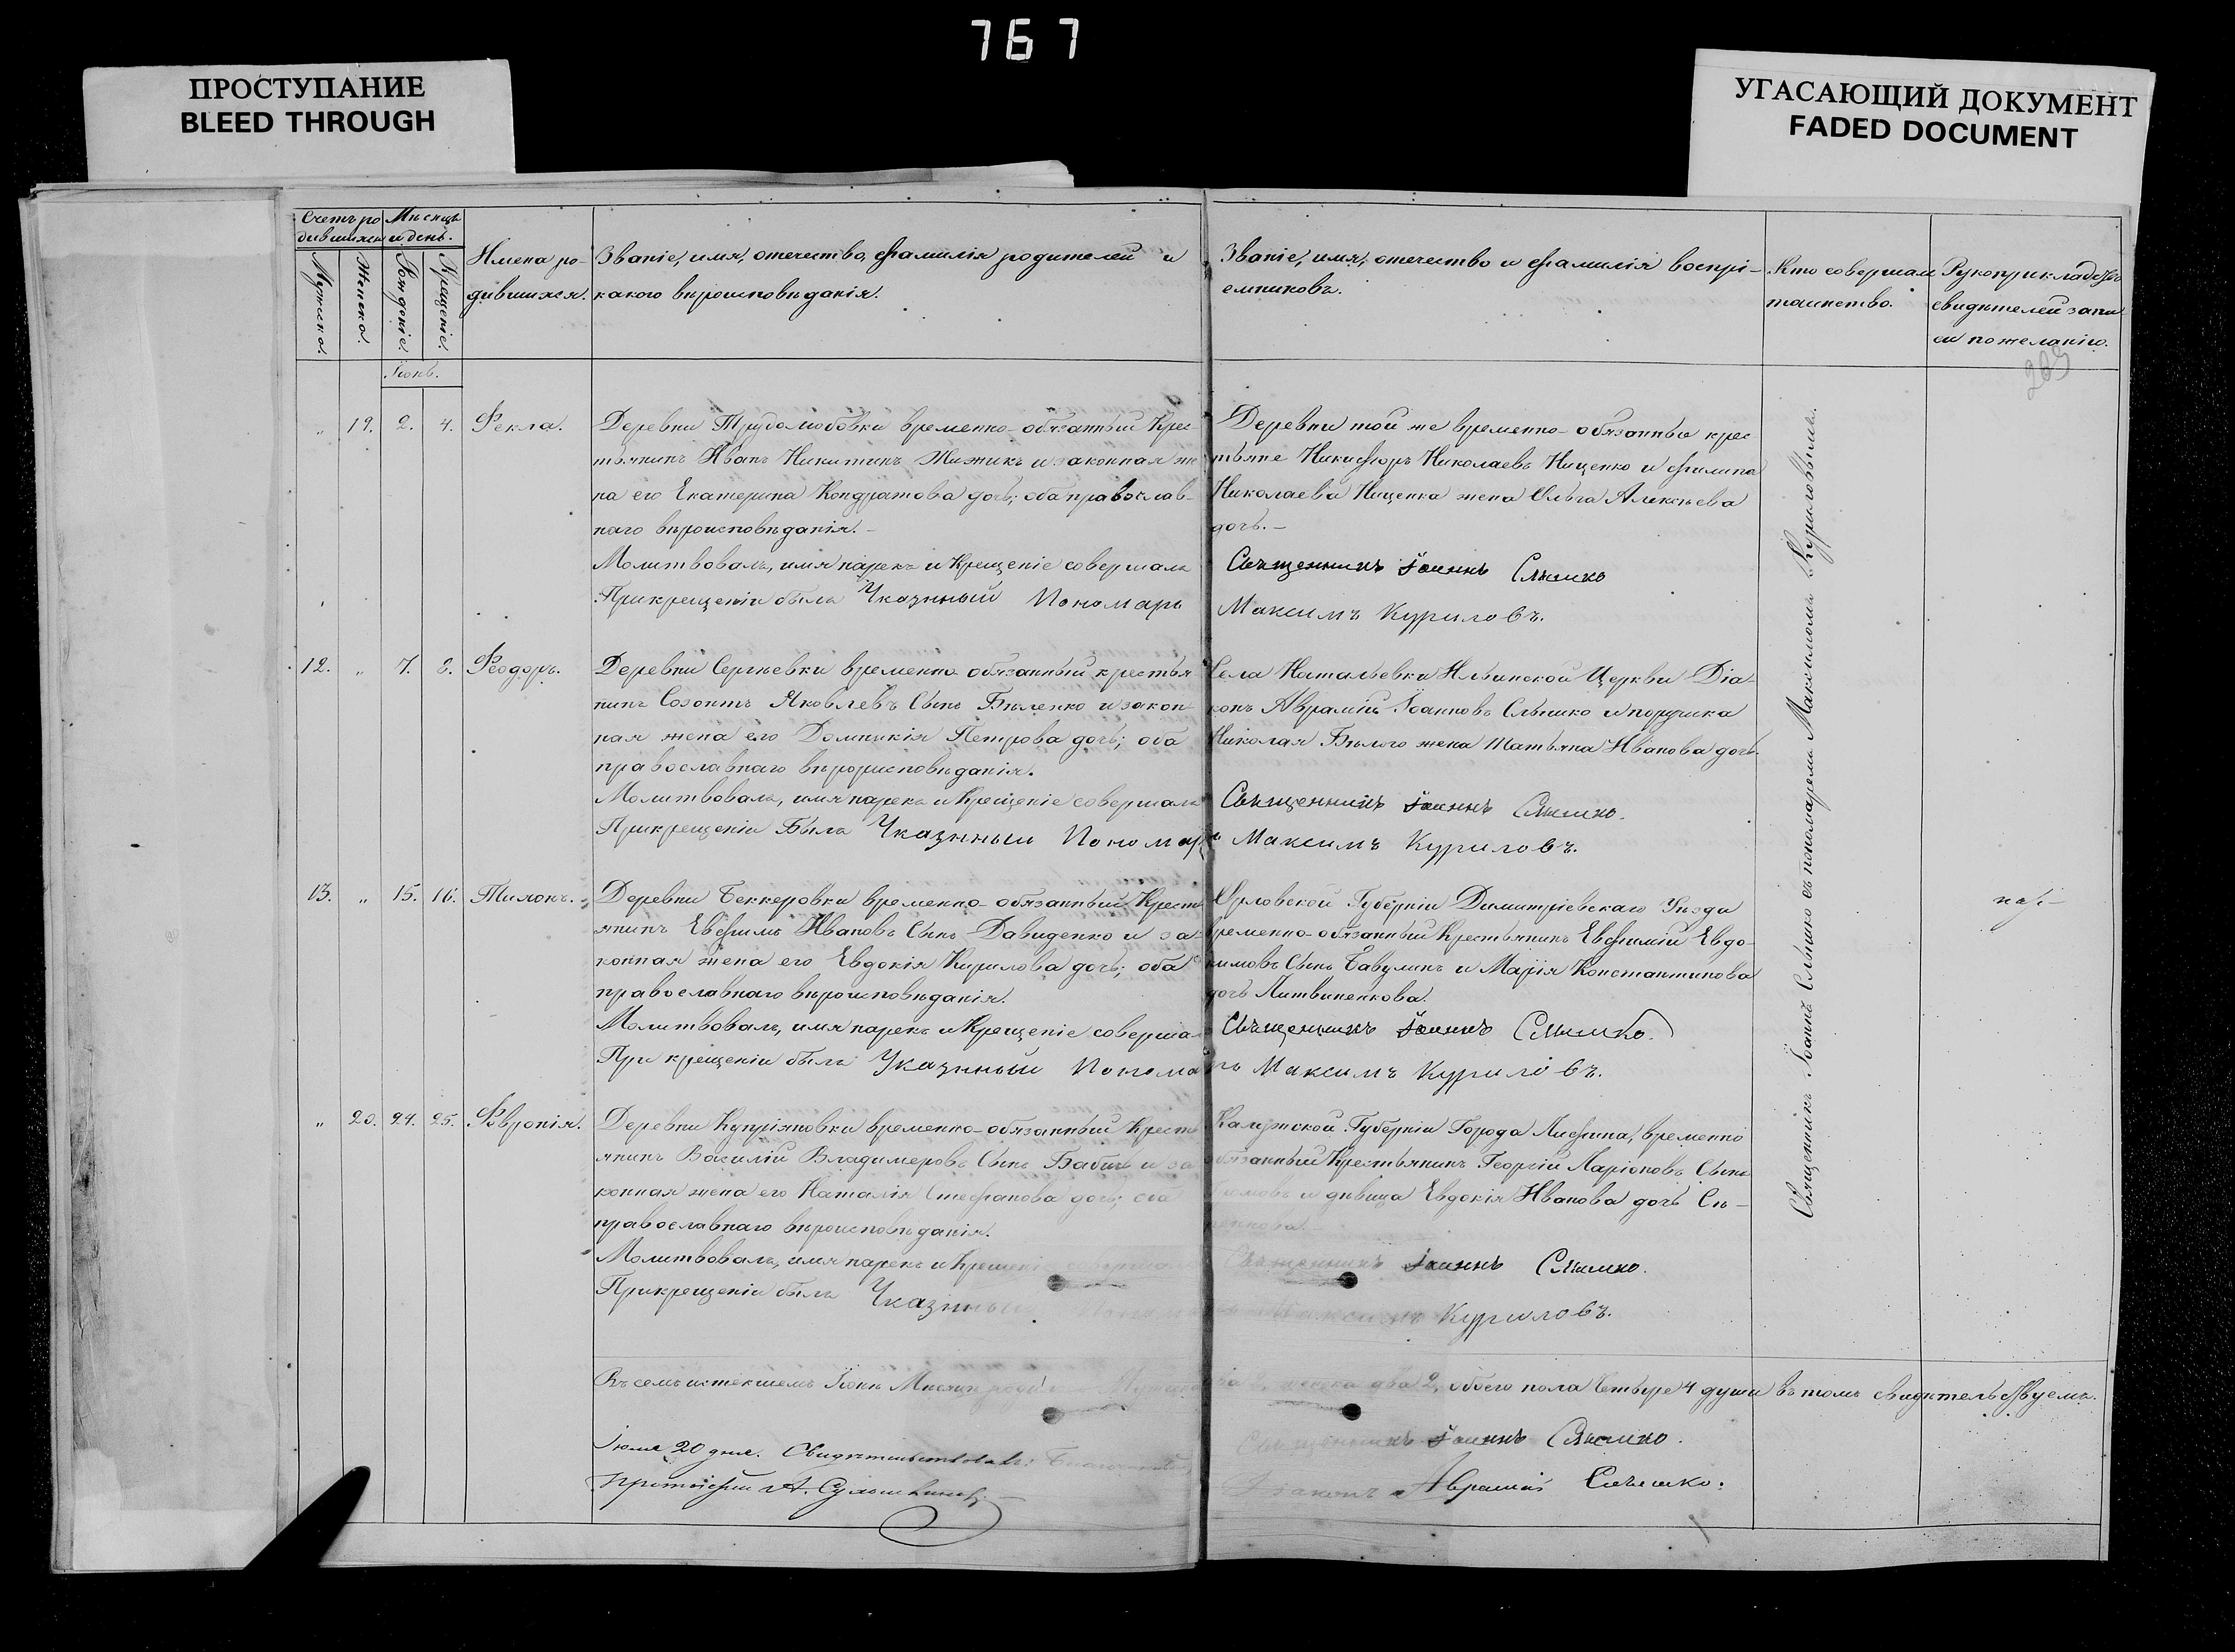 767
ПРОСТУПАНИЕ
BLEED THROUGH
УГАСАЮЩИЙ ДОКУМЕНТ
FADED DOCUMENT
Счетъ ро
дившихся
Мѣсяцъ
и день.
Мужеска.
Женска.
Рожденіе.
Крещеніе.
Имена ро-
дившихся.
Званіе, имя, отчество, фамилія родителей и
какого вѣроисповѣданія.
Званіе, имя, отечество и фамилія воспрі-
емниковъ.
Кто совершал
таинство.
Рукоприкладство
свидѣтелей запи
си по желанію.
Іюнь.
„ 19. 2. 4. Фекла.
Деревни Трудолюбовки временно-обязанный Крес-
тьянинъ Иванъ Никитинъ и законная же
на его Екатерина Кондратова дочь; оба православ-
наго вѣроисповѣданія.-
Молитвовалъ, имя нарекъ и Крещеніе совершалъ
При крещеніи былъ Указнный Пономарь
Деревни той же временно-обязанные крес
тьяне Никифоръ Николаевъ Нищенко и Филипа
Николаева Нищенка жена Ольга Алексѣева
дочь.-
Священникъ Іоаннъ Слышко
Максимъ Куриловъ.
12. „ 7. 8. Феодоръ.
Деревни Сергѣевки временно обязанный крестья
нинъ Созонтъ Яковлевъ Сынъ Бѣленко и закон-
ная жена его Домникія Петрова дочь; оба
православнаго вѣроисповѣданія.
Молитвовалъ, имя нарекъ и Крещеніе совершалъ
При крещеніи Былъ Указнный Пономарь
Села Натальевки Ильинской Церкви Діа-
конъ Аврамій Іоанновъ Слышко и поручика
Николая Бѣлого жена Татьяна Иванова дочь.
Священникъ Іоаннъ Слышко.
Максимъ Куриловъ.
13. „ 15. 16. Тихонъ.
Деревни Беккеровки временно-обязанный Кресть
янинъ Евфимъ Ивановъ Сынъ Давиденко и за-
конная жена его Евдокія Кирилова дочь; оба
православнаго вѣроисповѣданія.
Молитвовалъ, имя нарекъ и Крещеніе соверша
При крещеніи былъ Указнный Понома
Орловской Губерніи Димитріевскаго Уѣзда
временно-обязанный Крестьянинъ Евфимій Евдо-
кимовъ Сынъ Бавулинъ и Марія Константинова
дочь Литвиненкова.
Священникъ Іоаннъ Слышко.
рь Максимъ Куриловъ.
„ 20. 24. 25. Февронія.
Деревни Купріяновки временно-обязанный Кресть
янинъ Василій Владимеровъ Сынъ Бабичъ и за
конная жена его Наталія Стефанова дочь; оба
православнаго вѣроисповѣданія.
Молитвовалъ, имя нарекъ и Крещені
При крещеніи былъ Указнный
Калужской Губерніи Города Лифина, временно
обязанный Крестьянинъ Георгій Ларіоновъ Сынъ
и дѣвица Евдокія Иванова дочь Сѣ-
Священникъ Іоаннъ Слышко.
Максимъ Куриловъ.
Священникъ Іоаннъ Слышко съ пономаремъ Максимомъ Куриловымъ.
Въ семъ истекшемъ Іюнѣ Мѣсяцѣ женска два 2, обоего пола Четыре 4 души въ томъ свидѣтельствуемъ.
Іюля 20 дня. Свидѣтельствовалъ:
Протоіерей А.
Священникъ Іоаннъ Слышко.
Діаконъ Аврамій Слышко.